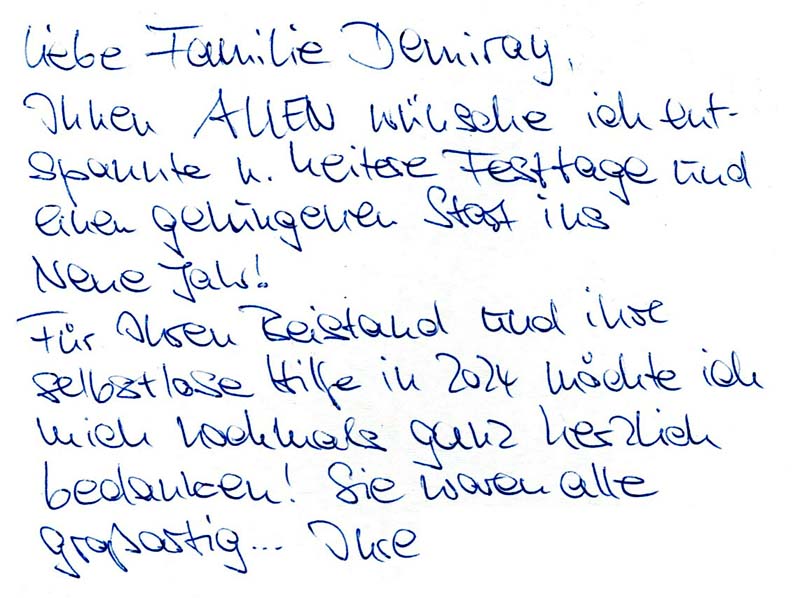 liebe Familie Demiray,
Ihnen ALLEN wünsche ich ent-
spannte u. heitere Festtage und
einen gelungenen Start ins
Neue Jahr!
Für Ihren Beistand und ihre
selbstlose Hilfe in 2024 möchte ich
mich nochmals ganz herzlich
bedanken! Sie waren alle
großartig... Ihre